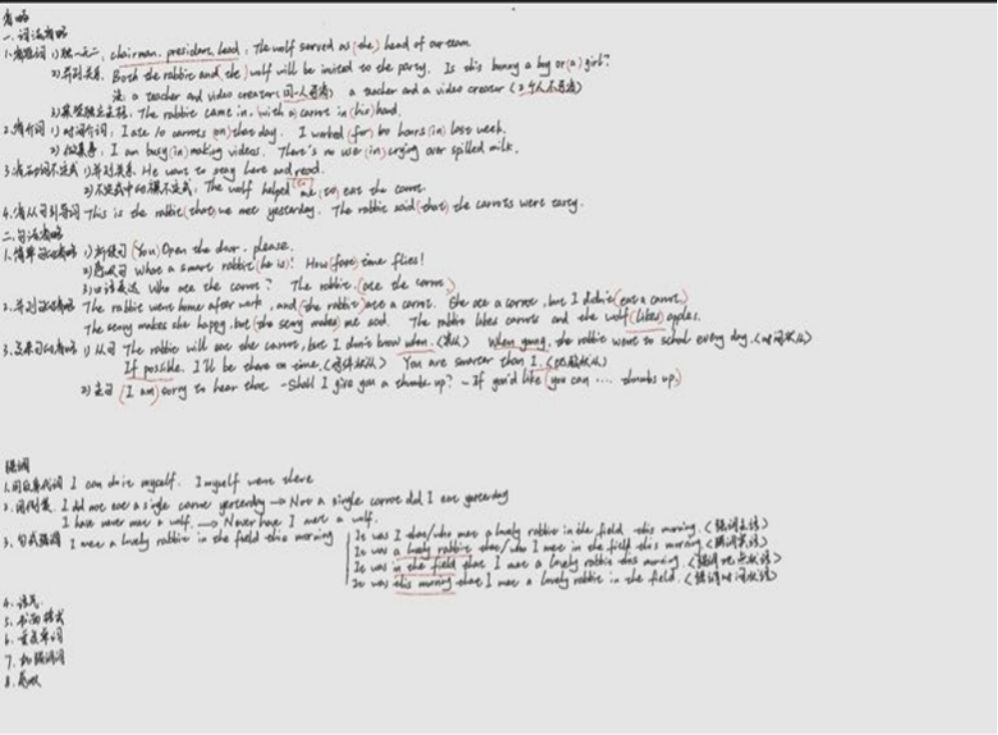 省略
一. 词法省略
1. 省冠词 1) 独一无二, chairman, president, head : The wolf served as (the) head of our team
2) 并列关系. Both the rabbit and (the) wolf will be invited to the party. Is this bunny a boy or (a) girl?
注: a teacher and video creator (同一人可省) a teacher and a video creator (2个人不可省)
3) 某些独立主格: The rabbit came in, (with a) carrot in (his) hand.
2. 省介词 1) 时间介词: I ate 10 carrots (on) that day. I worked (for) 60 hours (in) last week.
2) 做某事: I am busy (in) making videos. There's no use (in) crying over spilled milk.
3. 省动词不定式 1) 并列关系. He want to stay here and read.
2) 不定式中的裸不定式: The wolf helped me (to) eat the carrot.
4. 省从句引导词 This is the rabbit (that) we met yesterday. The rabbit said (that) the carrots were tasty.
二. 句法省略
1. 简单句的省略 1) 祈使句 (You) Open the door, please.
2) 感叹句 What a smart rabbit (he is)! How (fast) time flies!
3) 口语表达 Who ate the carrot? The rabbit. (ate the carrot.)
2. 并列句的省略 The rabbit went home after work, and (the rabbit) ate a carrot. She ate a carrot, but I didn't (eat a carrot.)
The story makes she happy, but (the story makes) me sad. The rabbit likes carrots and the wolf (likes) apples.
3. 复合句的省略 1) 从句 The rabbit will eat the carrot, but I don't know when. (宾从) When young, the rabbit went to school every day. (时间状从)
If possible, I'll be there on time. (条件状从) You are smarter than I. (比较状从)
2) 主句 (I am) sorry to hear that - Shall I give you a thumbs up? - If you'd like (you can .... thumbs up.)
强调
1. 用反身代词 I can do it myself. I myself went there
2. 用倒装. I did not eat a single carrot yesterday → Not a single carrot did I eat yesterday
I have never met a wolf. → Never have I met a wolf.
3. 句式强调 I met a lovely rabbit in the field this morning
It was I that/who met a lovely rabbit in the field this morning. (强调主语)
It was a lovely rabbit that/who I met in the field this morning (强调宾语)
It was in the field that I met a lovely rabbit this morning. (强调地点状语)
It was this morning that I met a lovely rabbit in the field. (强调时间状语)
4. 语气
5. 书面格式
6. 重复单词
7. 加强调词
8. 感叹